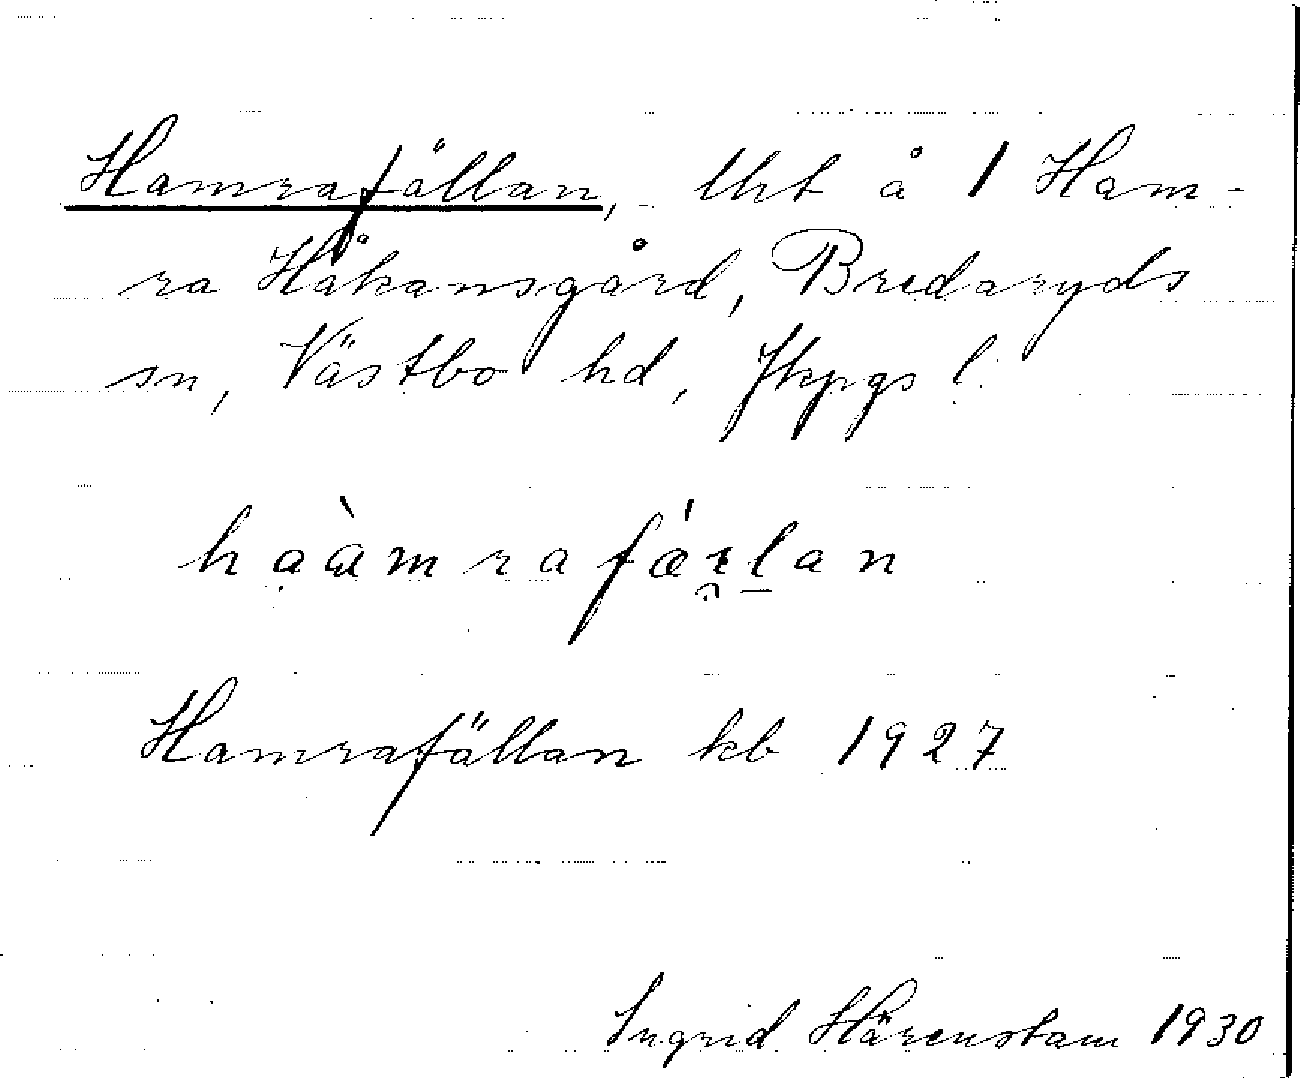 Hamrafällan, lht å 1 Ham-
ra Håkansgård, Bredaryds
sn, Västbo hd, Jkpgs l.
haàmrafæ̀ɩ̯l̲an
Hamrafällan kb 1927
Ingrid Härenstam 1930